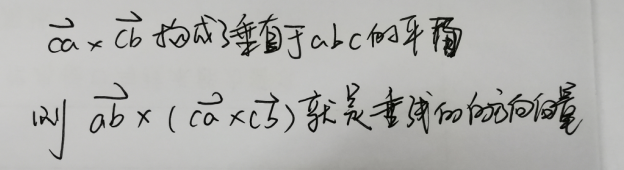 $\overrightarrow{ca} \times \overrightarrow{cb}$ 构成了垂直于abc的平面
则 $\overrightarrow{ab} \times (\overrightarrow{ca} \times \overrightarrow{cb})$ 就是垂线的的方向向量